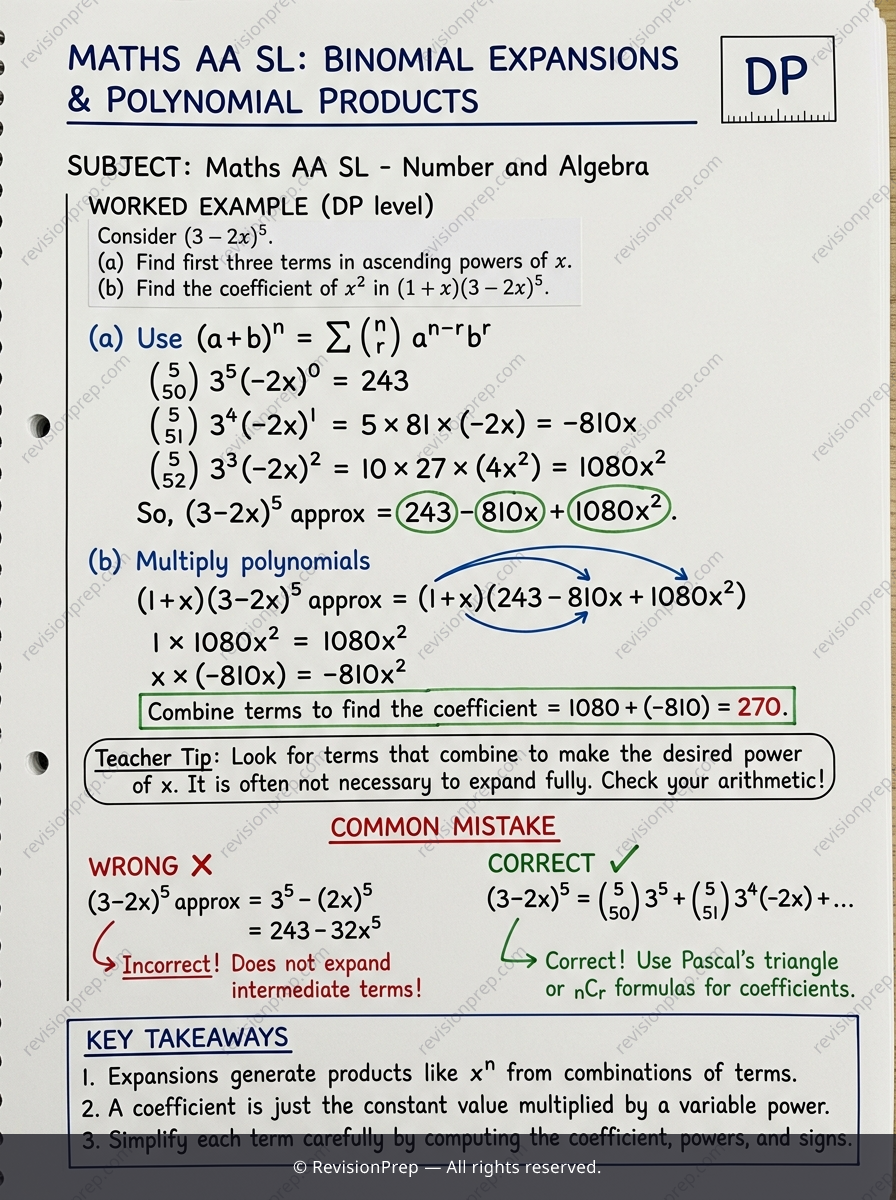 MATHS AA SL: BINOMIAL EXPANSIONS
& POLYNOMIAL PRODUCTS
DP
SUBJECT: Maths AA SL - Number and Algebra
WORKED EXAMPLE (DP level)
Consider (3 – 2x)⁵.
(a) Find first three terms in ascending powers of x.
(b) Find the coefficient of x² in (1 + x)(3 – 2x)⁵.
(a) Use (a+b)ⁿ = ∑ (n r) aⁿ⁻ʳbʳ
(5 50) 3⁵(-2x)⁰ = 243
(5 51) 3⁴(-2x)¹ = 5 × 81 × (-2x) = -810x
(5 52) 3³(-2x)² = 10 × 27 × (4x²) = 1080x²
So, (3-2x)⁵ approx = 243 - 810x + 1080x².
(b) Multiply polynomials
(1+x)(3-2x)⁵ approx = (1+x)(243 - 810x + 1080x²)
1 × 1080x² = 1080x²
x × (-810x) = -810x²
Combine terms to find the coefficient = 1080 + (-810) = 270.
Teacher Tip: Look for terms that combine to make the desired power
of x. It is often not necessary to expand fully. Check your arithmetic!
COMMON MISTAKE
WRONG ✗
(3-2x)⁵ approx = 3⁵ - (2x)⁵
= 243 - 32x⁵
Incorrect! Does not expand
intermediate terms!
CORRECT ✓
(3-2x)⁵ = (5 50) 3⁵ + (5 51) 3⁴(-2x) + ...
Correct! Use Pascal's triangle
or nCr formulas for coefficients.
KEY TAKEAWAYS
1. Expansions generate products like xⁿ from combinations of terms.
2. A coefficient is just the constant value multiplied by a variable power.
3. Simplify each term carefully by computing the coefficient, powers, and signs.
© RevisionPrep — All rights reserved.
revisionprep.com